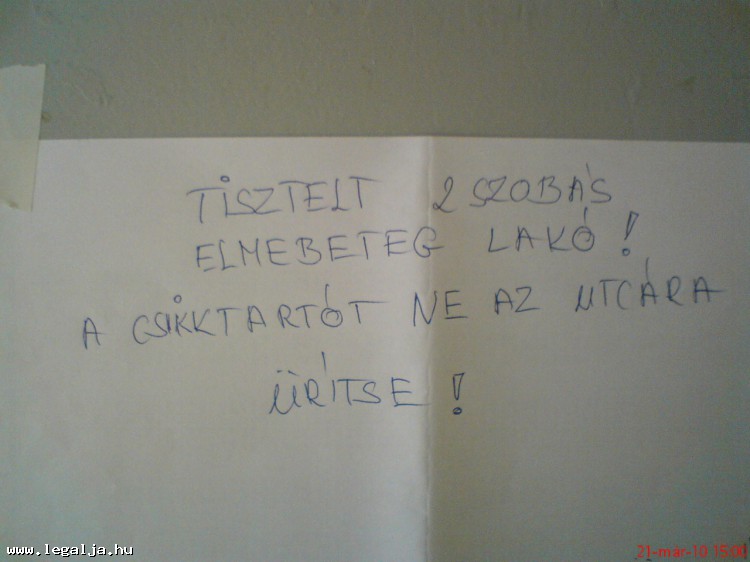 TISZTELT 2 SZOBÁS
ELMEBETEG LAKÓ!
A CSIKKTARTÓT NE AZ UTCÁRA
ÜRÍTSE!
www.legalja.hu
21-mar-10 15:00